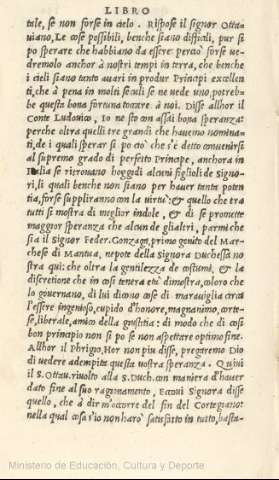 LIBRO
tale, se non forse in cielo. Rispose il signor Otta-
uiano, Le cose possibili, benche siano difficili, pur si
po sperare che habbiano da essere: perciò forse ue-
dremolo anchor à nostri tempi in terra, che benche
i cieli siano tanto auari in produr Principi excellen
ti, che à pena in molti seculi se ne uede uno, potreb-
be questa bona fortuna toccare à noi. Disse allhor il
Conte Ludouico, Io ne sto con assai bona speranza:
perche oltra quelli tre grandi che hauemo nomina-
ti, de i quali sperar si po ciò che s'è detto conuenirsi
al supremo grado di perfetto Principe, anchora in
Italia se ritrouano hoggidì alcuni figlioli de Signo-
ri, li quali benche non siano per hauer tanta poten
tia, forse suppliranno con la uirtù: & quello che tra
tutti si mostra di miglior indole, & di se promette
maggior speranza che alcun de glialtri, parmi che
sia il Signor Feder. Gonzaga, primo genito del Mar-
chese di Mantua, nepote della Signora Duchessa no
stra qui: che oltra la gentilezza de costumi, & la
discretione che in così tenera età dimostra, coloro che
lo gouernano, di lui dicono cose di marauiglia circa
l'essere ingenioso, cupido d'honore, magnanimo, corte-
se, liberale, amico della giustitia: di modo che di così
bon principio non si po se non aspettare optimo fine.
Allhor il Phrigio, Hor non piu disse, pregaremo Dio
di uedere adempita questa uostra speranza. Quiui
il S. Ottau. riuolto alla S. Duch. con maniera d'hauer
dato fine al suo ragionamento, Eccoui Signora disse
quello, che à dir m'occorre del fin del Cortegiano:
nella qual cosa s'io non harò satisfatto in tutto, basta-
Ministerio de Educación, Cultura y Deporte